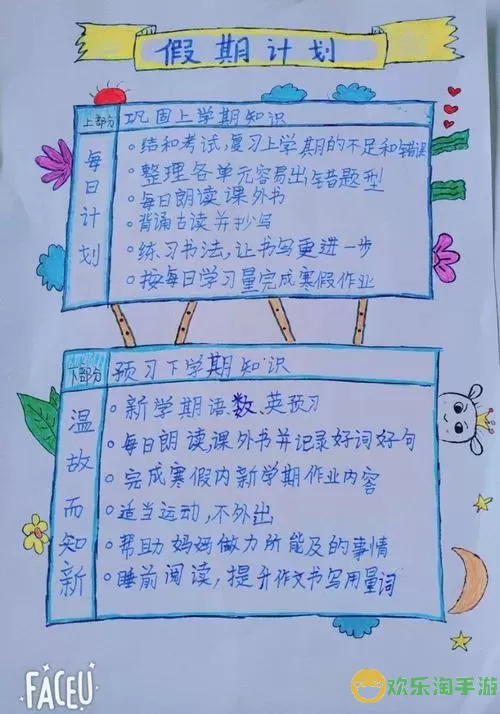 假期计划
上部分 巩固上学期知识
每日计划
结和考试,复习上学期的不足和错误
整理各单元容易出错题型
每日朗读课外书
背诵古读并抄写
练习书法,让书写更进一步
按每日学习量完成寒假作业
下部分 预习下学期知识
温故而知新
新学期语、数、英预习
每日朗读,课外书并记录好词好句
完成寒假内新学期作业内容
适当运动,不外出
帮助妈妈做力所能及的事情
睡前阅读,提升作文书写用量词
FACEU
欢乐淘手游